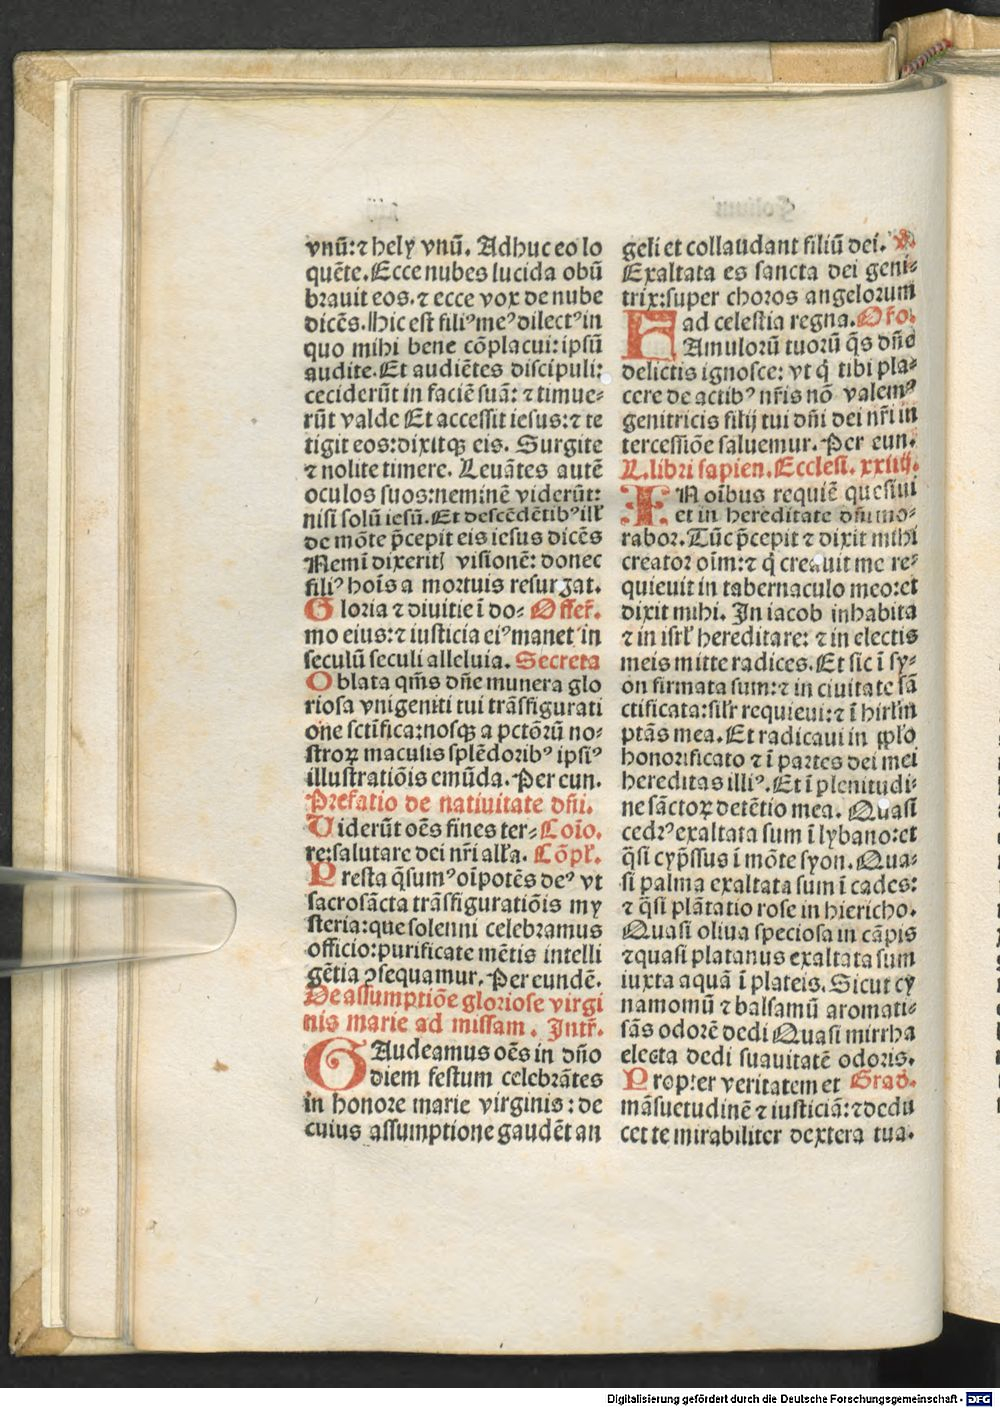 vnū: ⁊ helꝫ vnū. Adhuc eo lo
quēte. Ecce nubes lucida obū
brauit eos. ⁊ ecce vox de nube
dicēs. Hic est filiꝰ meꝰ dilectꝰ in
quo mihi bene cōplacui: ipsū
audite. Et audiētes discipuli:
ceciderūt in faciē suā: ⁊ timue⸗
rūt valde Et accessit iesus: ⁊ te
tigit eos: dixitqꝫ eis. Surgite
⁊ nolite timere. Leuātes autē
oculos suos: neminē viderūt:
nisi solū iesū. Et descēdētibꝰ ill'
de mōte p̄cepit eis iesus dicēs
Nemī dixeritl visionē: donec
filiꝰ hoīs a mortuis resurgat.
Gloria ⁊ diuitie ī do⸗ Offer̄.
mo eius: ⁊ iusticia eiꝰ manet in
seculū seculi alleluia. Secreta
Oblata qm̄s dn̄e munera glo
riosa vnigeniti tui trāsfigurati
one sctīfica: nosqꝫ a pctōrū no⸗
stroꝝ maculis splēdoribꝰ ipsiꝰ
illustratiōis emūda. Per eun.
Prefatio de natiuitate dn̄i.
Uiderūt oēs fines ter⸗ Coīo.
re: salutare dei nr̄i all'a. Cōpl'.
Presta q̄sumꝰ oīpotēs deꝰ vt
sacrosācta trāsfiguratiōis my
steria: que solenni celebramus
officio: purificate mētis intelli
gētia ꝯsequamur. Per eundē.
De assumptiōe gloriose virgi
nis marie ad missam. Intr̄.
GAudeamus oēs in dn̄o
diem festum celebrātes
in honore marie virginis: de
cuius assumptione gaudēt an
geli et collaudant filiū dei. V.
Exaltata es sancta dei geni⸗
trix: super choros angelorum
ad celestia regna. Oro.
FAmulorū tuorū q̄s dn̄e
delictis ignosce: vt q̄ tibi pla⸗
cere de actibꝰ nr̄is nō valemꝰ
genitricis filij tui dn̄i dei nr̄i in
tercessiōe saluemur. Per eun.
L. libri sapien. Ecclesi. xxiiij.
IN oībus requiē quesiui
et in hereditate dn̄i mo⸗
rabor. Tūc p̄cepit ⁊ dixit mihi
creator oīm: ⁊ q̄ creauit me re⸗
quieuit in tabernaculo meo: et
dixit mihi. In iacob inhabita
⁊ in isrl' hereditare: ⁊ in electis
meis mitte radices. Et sic ī sy⸗
on firmata sum: ⁊ in ciuitate sā
ctificata: sil'r requieui: ⁊ ī hirl'm
ptās mea. Et radicaui in ppl'o
honorificato ⁊ ī partes dei mei
hereditas illiꝰ. Et ī plenitudi⸗
ne sāctoꝝ detētio mea. Quasi
cedrꝰ exaltata sum ī lybano: et
q̄si cyp̄ssus ī mōte syon. Qua⸗
si palma exaltata sum ī cades:
⁊ q̄si plātatio rose in hiericho.
Quasi oliua speciosa in cāpis
⁊ quasi platanus exaltata sum
iuxta aquā ī plateis. Sicut cy
namomū ⁊ balsamū aromati⸗
sās odorē dedi Quasi mirrha
electa dedi suauitatē odoris.
Propter veritatem et Grad.
māsuetudinē ⁊ iusticiā: ⁊ dedu
cet te mirabiliter dextera tua.
Digitalisierung gefördert durch die Deutsche Forschungsgemeinschaft - DFG